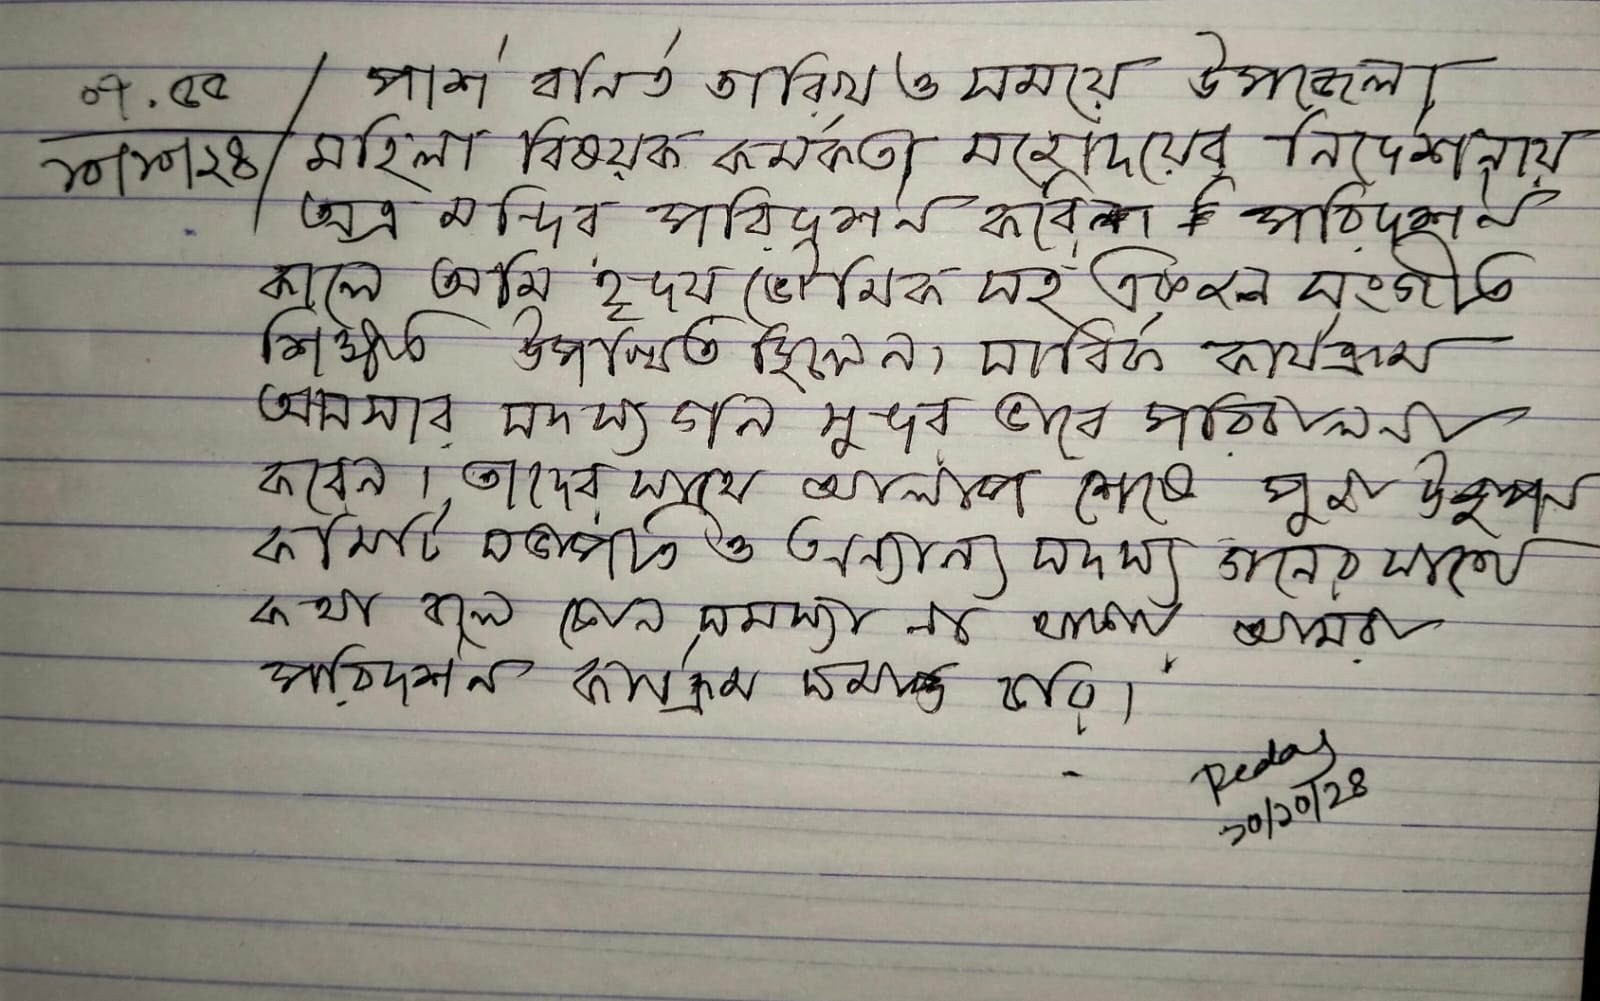 ০৭.৫৫ / পার্শ বর্নিত তারিখ ও সময়ে উপজেলা
১০/১০/২৪ / মহিলা বিষয়ক কর্মকর্তা মহোদয়ের নির্দেশনায়
অত্র মন্দির পরিদর্শন করি। পরিদর্শন
কালে আমি হৃদয় ভৌমিক সহ একজন সংগীত
শিক্ষক উপস্থিত ছিলেন। সার্বিক কার্যক্রম
আনসার সদস্য গন সুন্দর ভাবে পরিচালনা
করেন। তাদের সাথে আলাপ শেষে পুজা উদযাপন
কমিটি সভাপতি ও অন্যান্য সদস্য গনের সাথে
কথা বলে কোন সমস্যা না থাকায় আমরা
পরিদর্শন কার্যক্রম সমাপ্ত করি।
Reday
১০/১০/২৪